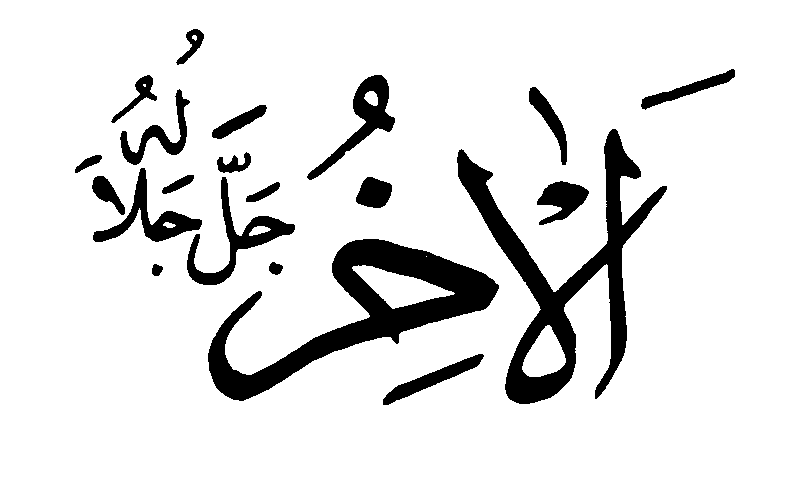 اَلْاٰخِرُ جَلَّ جَلَالُهُ